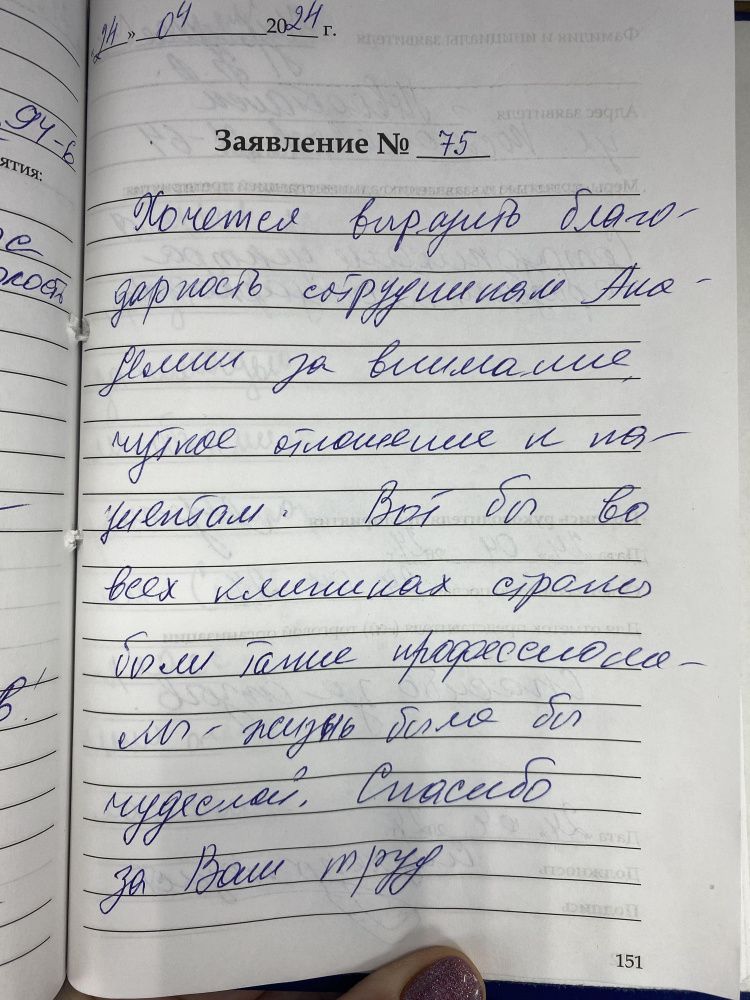 «24» 04 2024 г.
94-6
ятия:
Заявление № 75
Хочется выразить благо-
дарность сотрудникам Ака-
демии за внимание,
чуткое отношение к па-
циентам. Вот бы во
всех клиниках страны
были такие профессиона-
лы - жизнь была бы
чудесной. Спасибо
за Ваш труд
151